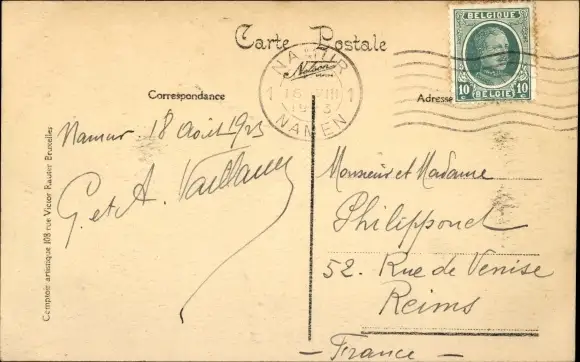 Carte Postale
BELGIQUE
10 BELGIË 10
NAMUR
1 1
NAMEN
Nelson
Correspondance
Adresse
Namur 18 Août 1925
G. et A. Vaillant
Monsieur et Madame
Philipponet
52. Rue de Venise
Reims
— France —
Comptoir artistique 108 rue Victor Rauter Bruxelles